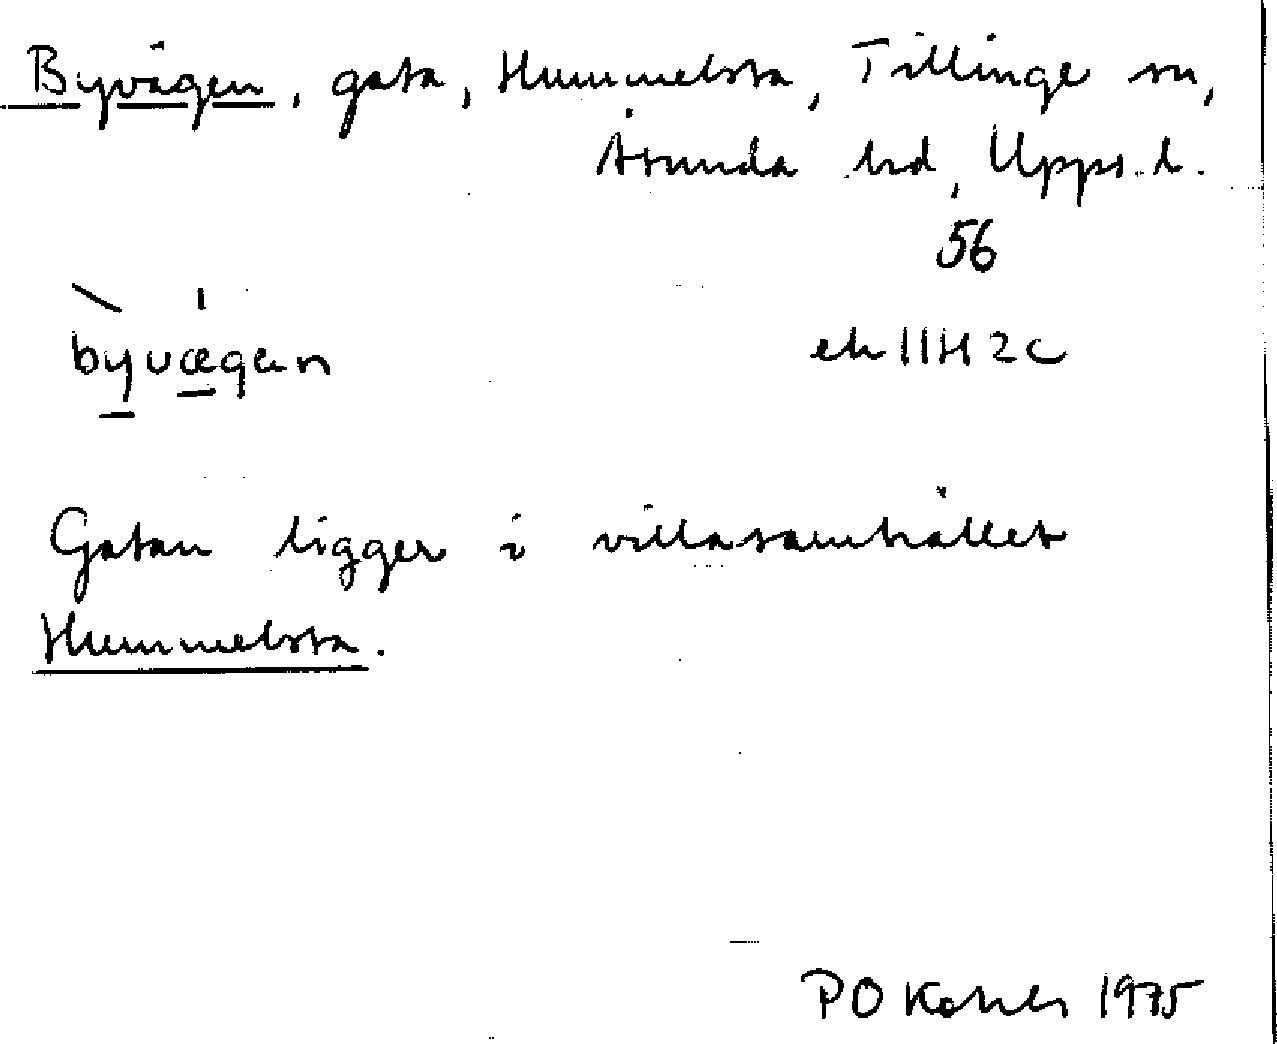 Byvägen, gata, Hummelsta, Tillinge sn,
Åsunda hd, Upps. l.
56
byvægen
ek 11H 2c
Gatan ligger i villasamhället
Hummelsta.
P O 1975